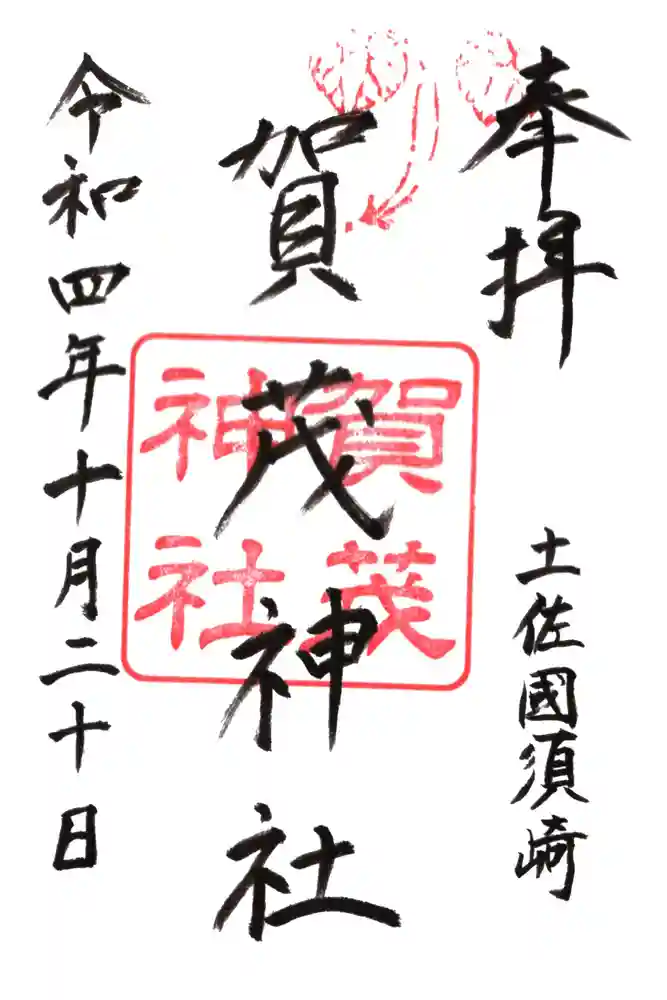 奉拝
土佐國須崎
賀茂神社
賀茂
神社
令和四年十月二十日